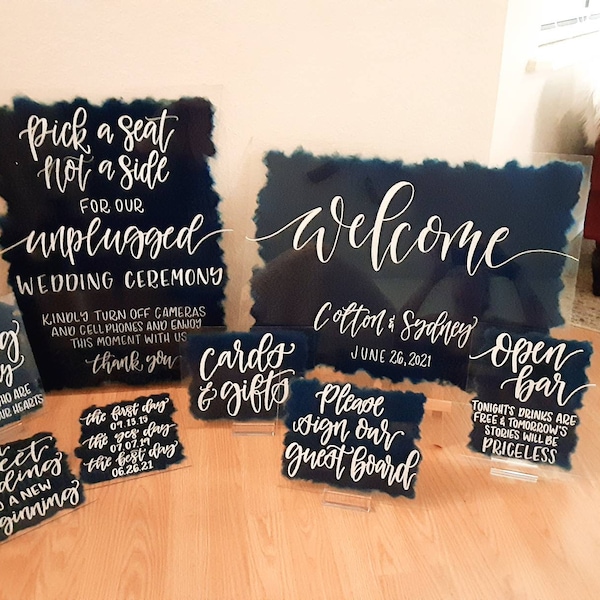 Pick a Seat
Not a Side
FOR OUR
unplugged
WEDDING CEREMONY
KINDLY TURN OFF CAMERAS
AND CELLPHONES AND ENJOY
THIS MOMENT WITH US
thank you
welcome
Colton & Sydney
JUNE 26, 2021
open
bar
TONIGHT'S DRINKS ARE
FREE & TOMORROW'S
STORIES WILL BE
PRICELESS
Cards
& gifts
Please
sign our
guest board
the first day
09.15.19
the yes day
07.07.19
the best day
06.26.21
WHO ARE
OUR HEARTS
A NEW